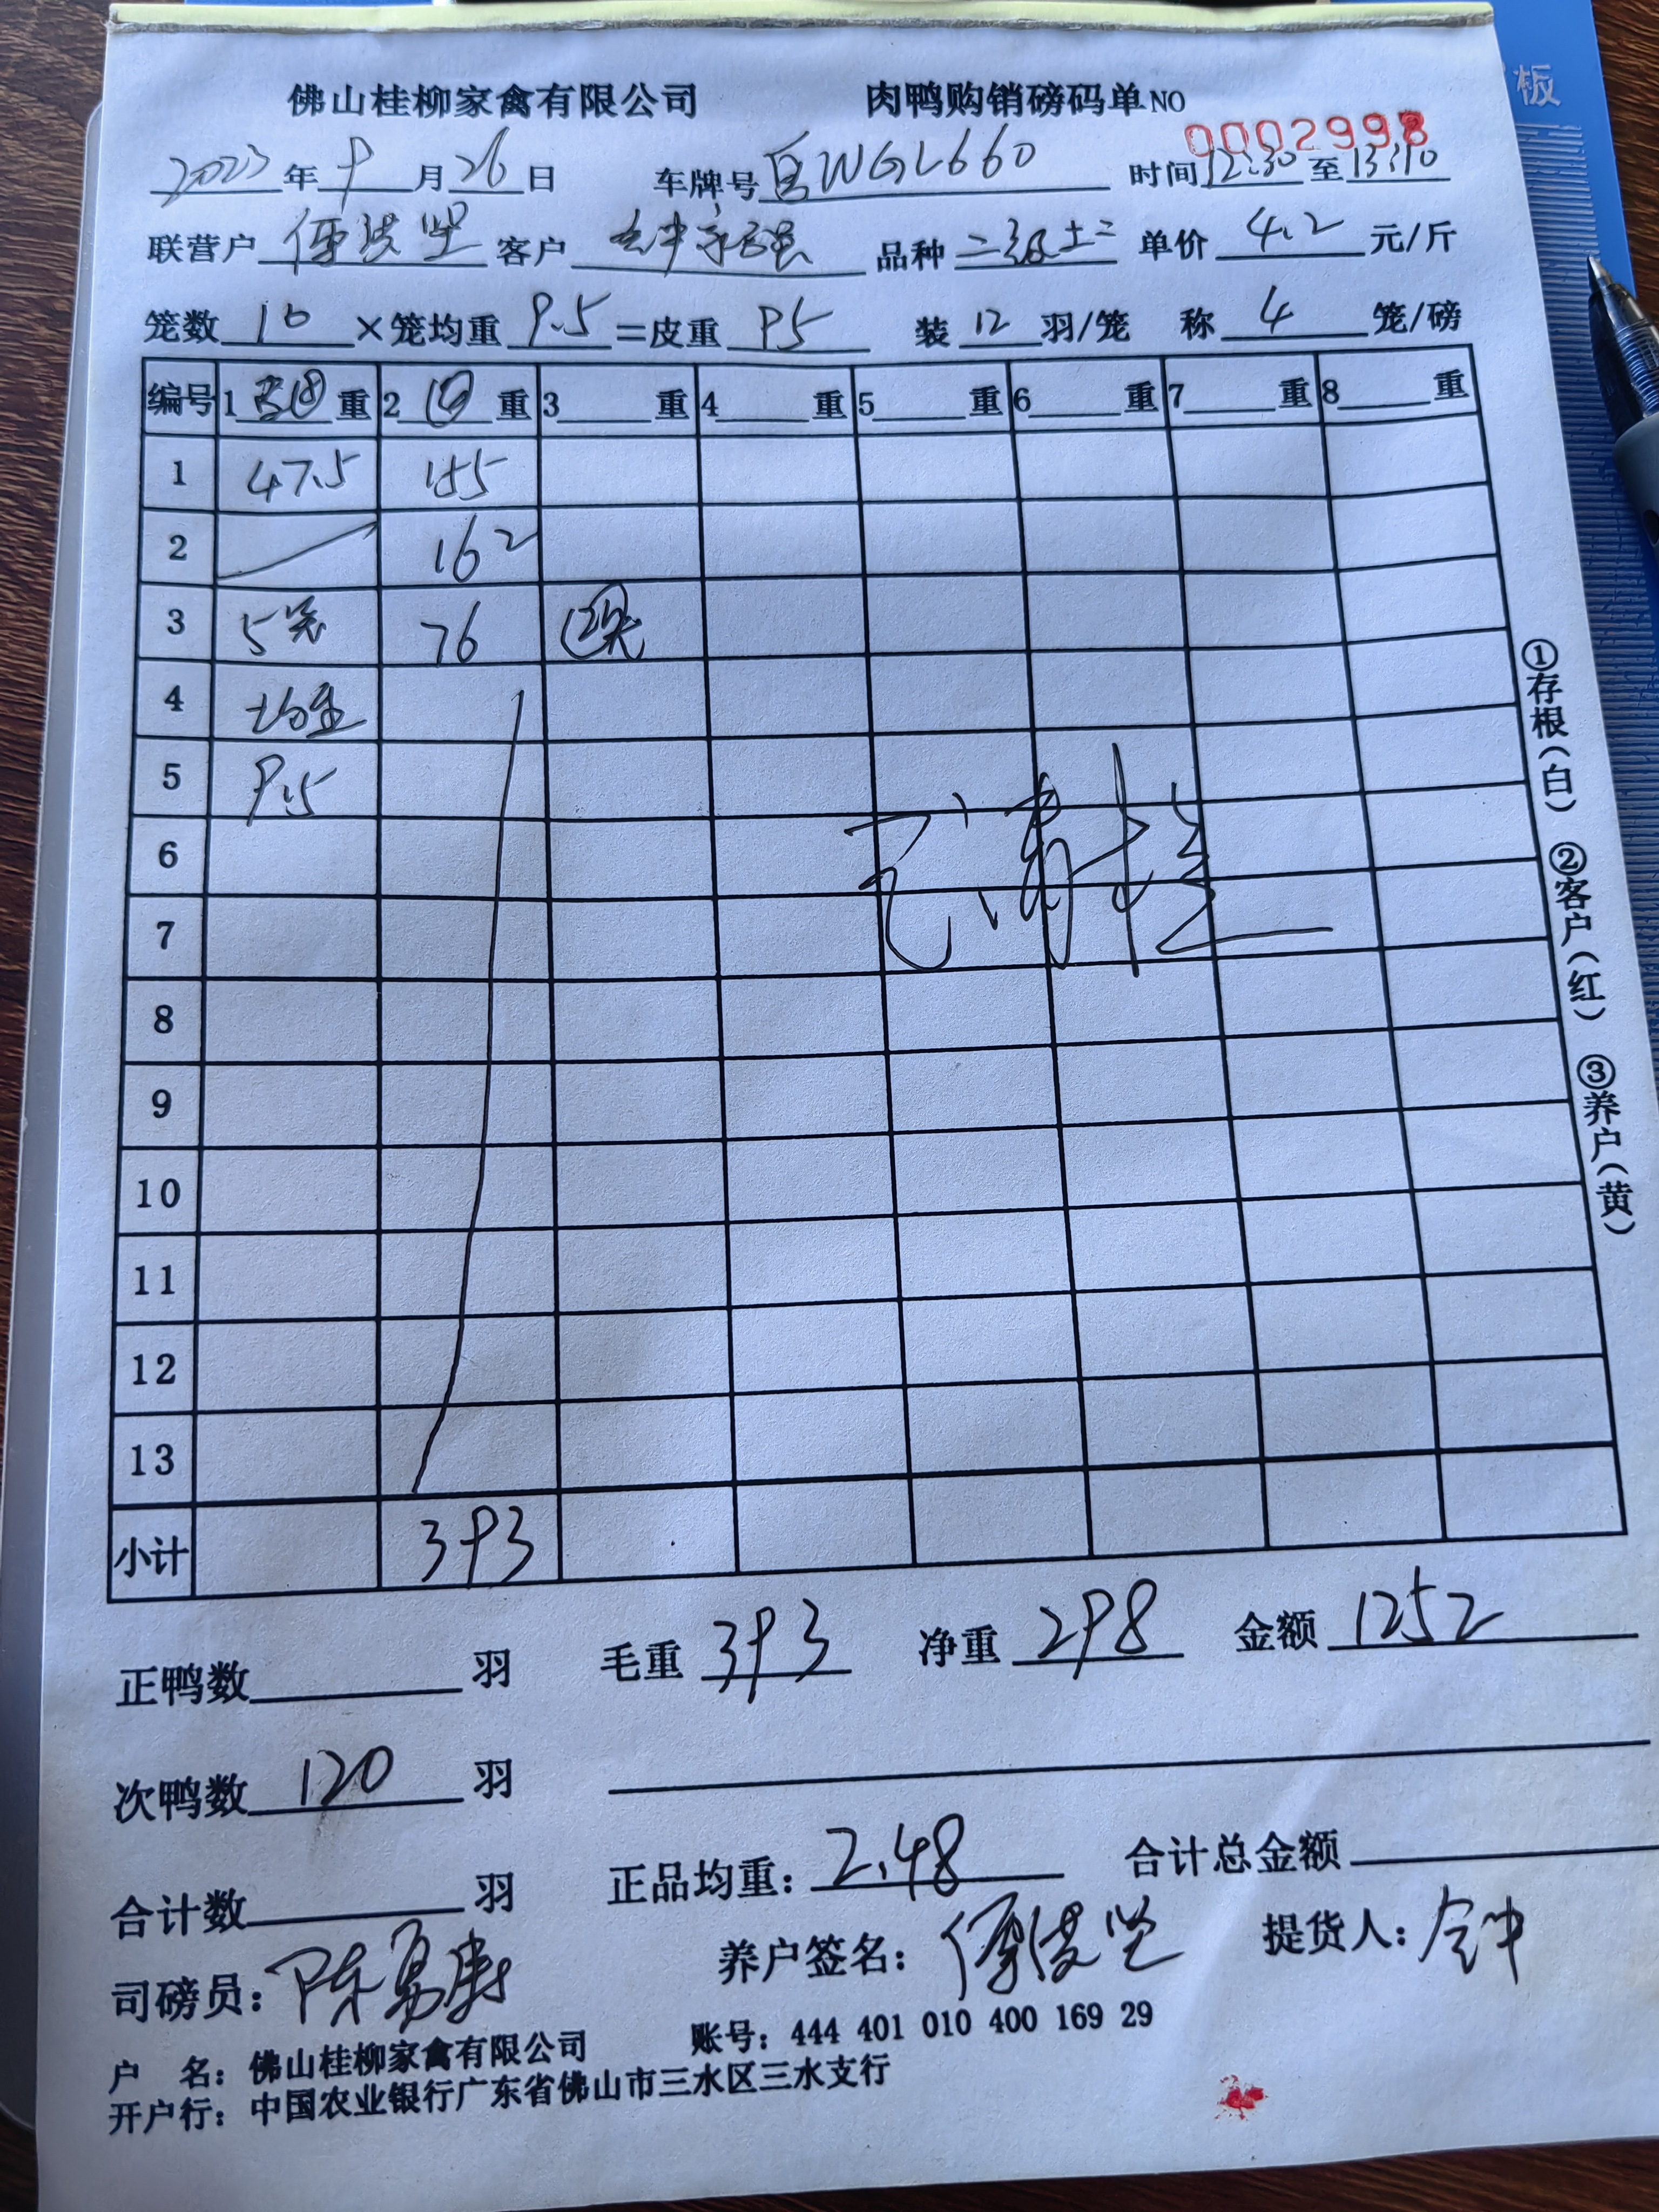 板
佛山桂柳家禽有限公司 肉鸭购销磅码单NO 0002998
2023年9月26日 车牌号 WGL660 时间12:30至13:10
联营户 客户 品种 二级土二 单价 4.2 元/斤
笼数 10 ×笼均重 9.5 =皮重 95 装 12 羽/笼 称 4 笼/磅
编号 1 重 2 ④ 重 3 重 4 重 5 重 6 重 7 重 8 重
1 47.5 155
2 162
3 5笼 76 2笼
4 均重
5 9.5
6
7
8
9
10
11
12
13
已清楚
小计 393
正鸭数 羽 毛重 393 净重 298 金额 1252
次鸭数 120 羽
合计数 羽 正品均重: 2.48 合计总金额
司磅员: 陈易康 养户签名: 提货人:
户 名: 佛山桂柳家禽有限公司 账号: 444 401 010 400 169 29
开户行: 中国农业银行广东省佛山市三水区三水支行
①存根(白) ②客户(红) ③养户(黄)